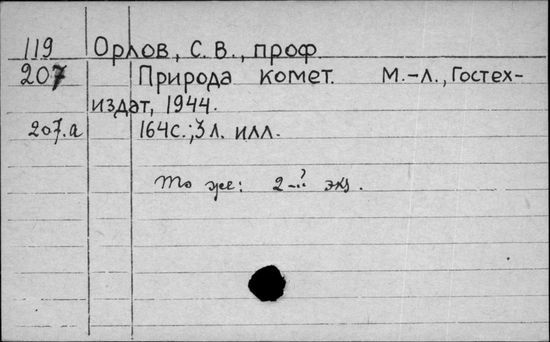 119 Орлов, С. В., проф
207 Природа комет. М.-Л., Гостех-
издат, 1944.
207.а 164с.; 3 л. илл.
То же: 2-й экз.